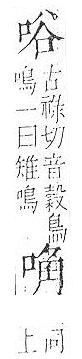 唂
古祿切音穀鳥
鳴一曰雉鳴
唃
同
上